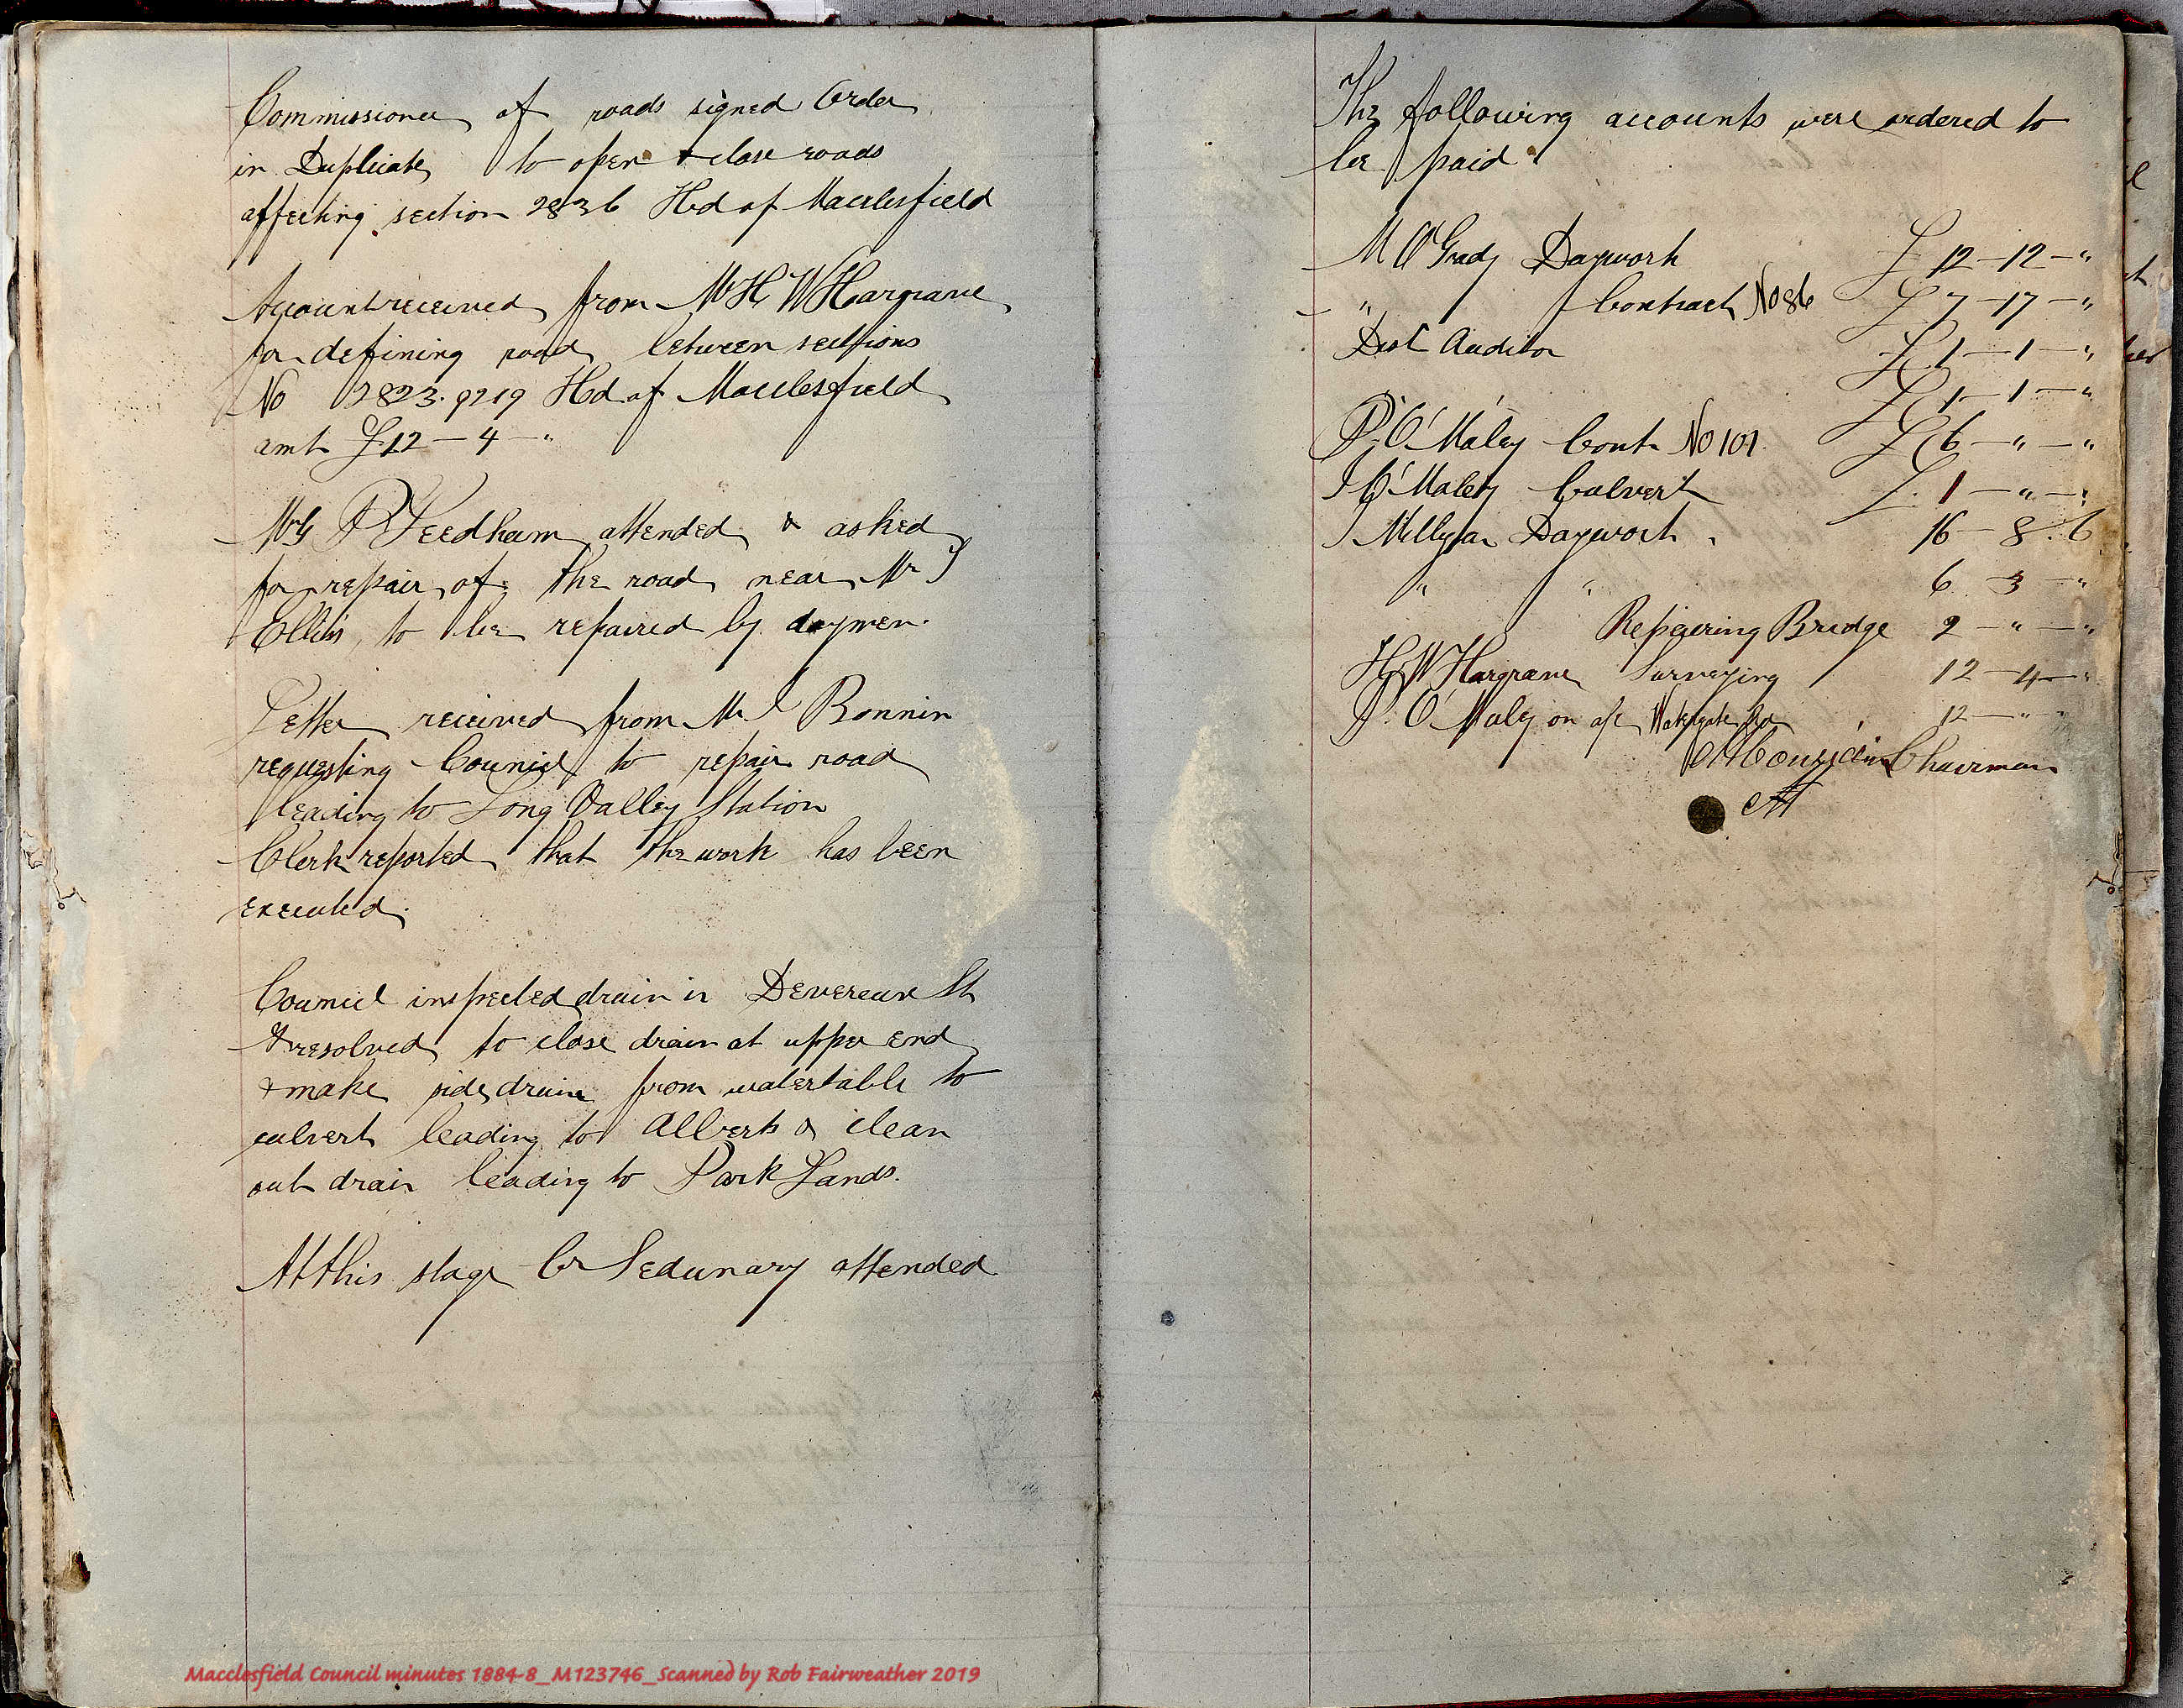 Commissioner of roads signed Order
in Duplicate to open & close roads
affecting section 2836 Hd of Macclesfield
Account received from Mr H W Hargrave
for defining road between sections
No 2823. 9219 Hd of Macclesfield
amt £12 — 4 — "
P Needham attended & asked
for repair of the road near Mr J
Ellis, to be repaired by daymen.
Letter received from Mr J Bonnin
requesting Council to repair road
leading to Long Valley Station
Clerk reported that the work has been
executed.
Council inspected drain in Devereux St
& resolved to close drain at upper end
& make side drain from watertable to
culvert leading to Alberts & clean
out drain leading to Park Lands.
At this stage Cr Sedunary attended
The following accounts were ordered to
be paid
M O'Grady Daywork £ 12 — 12 — "
" Contract No 86 £ 7 — 17 — "
Dist Auditor £ 1 — 1 — "
£ 1 — 1 — "
P. O'Maley Cont No 101 £ 6 — " — "
J O'Maley Culvert £ 1 — " — "
J Daywork 16 — 8 . 6
" " 6 — 3 — "
Repairing Bridge 2 — " — "
H W Hargrave Surveying 12 — 4 — "
P. O'Maley on a/c Watergate Rd 12 — " — "
Chairman
Macclesfield Council minutes 1884-8_M123746_Scanned by Rob Fairweather 2019